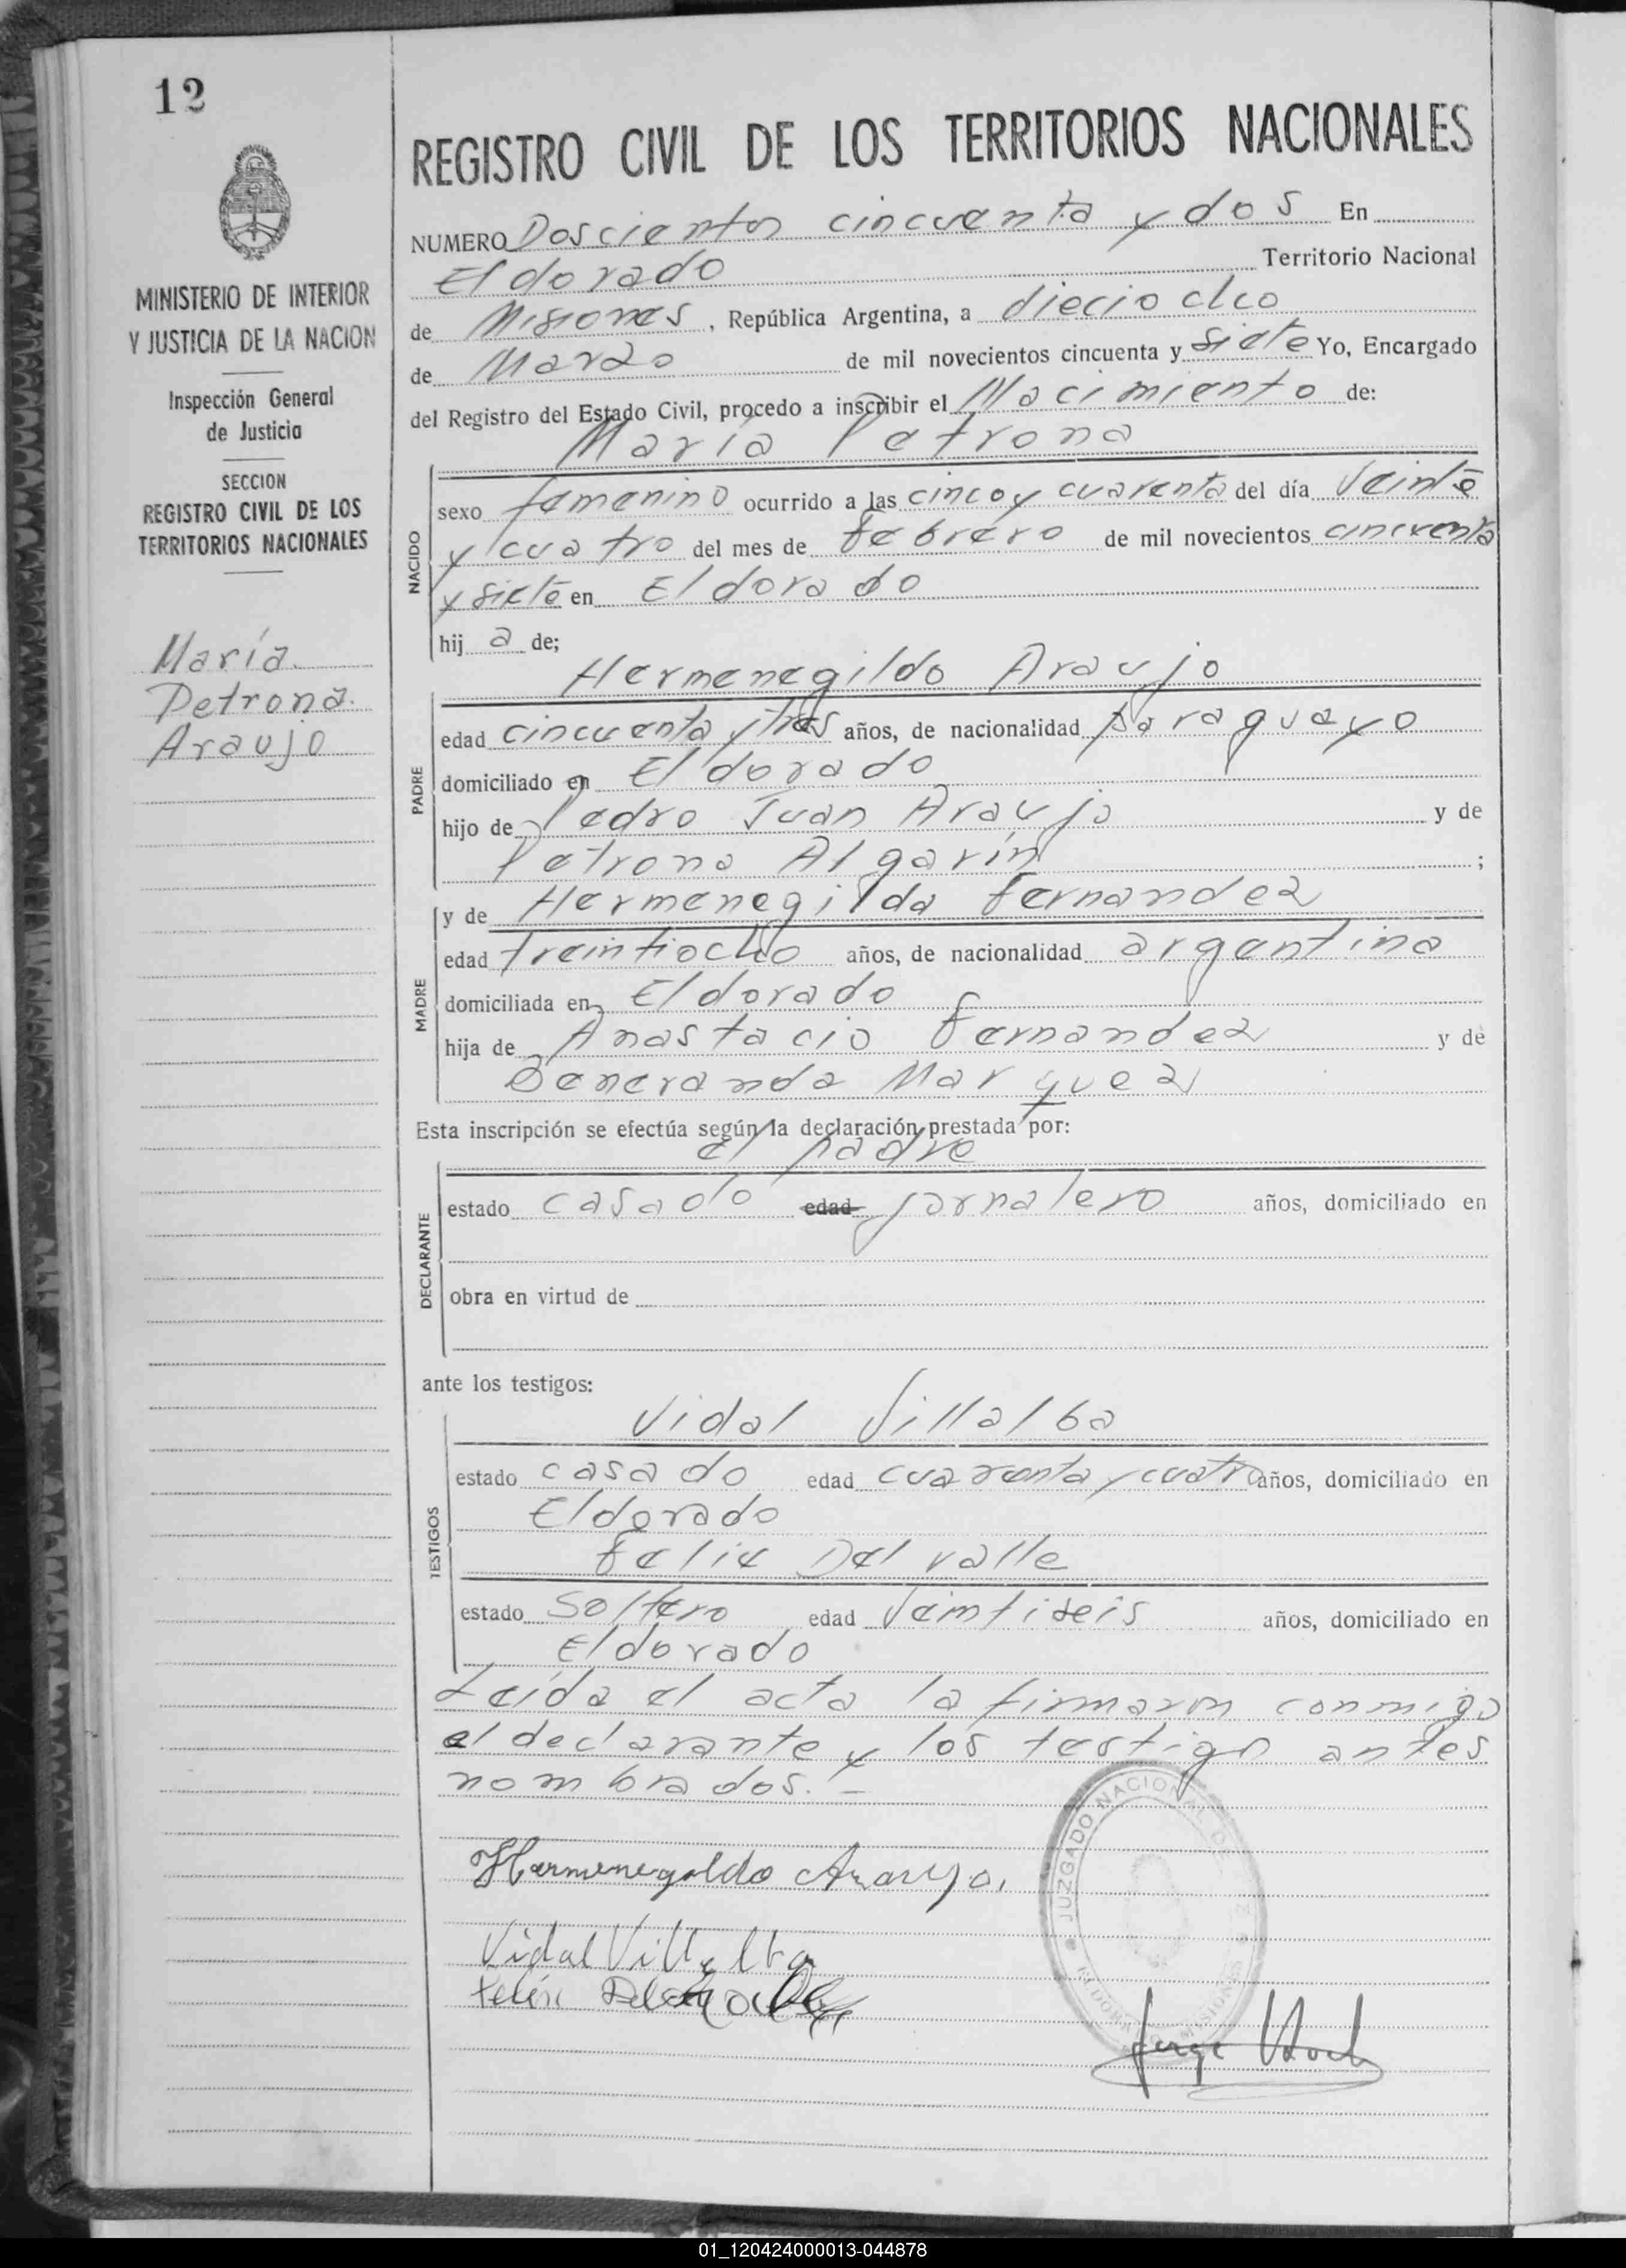 12
REGISTRO CIVIL DE LOS TERRITORIOS NACIONALES
NUMERO Doscientos cincuenta y dos En
Eldorado Territorio Nacional
de Misiones, República Argentina, a dieciocho
de Marzo de mil novecientos cincuenta y siete Yo, Encargado
del Registro del Estado Civil, procedo a inscribir el Nacimiento de:
María Petrona
MINISTERIO DE INTERIOR
Y JUSTICIA DE LA NACION
Inspección General
de Justicia
SECCION
REGISTRO CIVIL DE LOS
TERRITORIOS NACIONALES
María
Petrona
Araujo
NACIDO
sexo femenino ocurrido a las cinco y cuarenta del día Veinte
y cuatro del mes de febrero de mil novecientos cincuenta
y siete en Eldorado
hija de;
Hermenegildo Araujo
PADRE
edad cincuenta y tres años, de nacionalidad paraguayo
domiciliado en Eldorado
hijo de Pedro Juan Araujo y de
Petrona Algarín ;
MADRE
y de Hermenegilda Fernandez
edad treintiocho años, de nacionalidad argentina
domiciliada en Eldorado
hija de Anastacio Fernandez y de
Beneranda Marquez
Esta inscripción se efectúa según la declaración prestada por:
el padre
DECLARANTE
estado casado edad jornalero años, domiciliado en
obra en virtud de
ante los testigos:
Vidal Villalba
TESTIGOS
estado casado edad cuarenta y cuatro años, domiciliado en
Eldorado
Felix Del valle
estado Soltero edad Veintiseis años, domiciliado en
Eldorado
Leída el acta la firmaron conmigo
el declarante y los testigo antes
nombrados.—
JUZGADO NACIONAL DE
ELDORADO MISIONES
Hermenegildo Araujo.
Vidal Villalba
Felix
Jorge
01_120424000013-044878